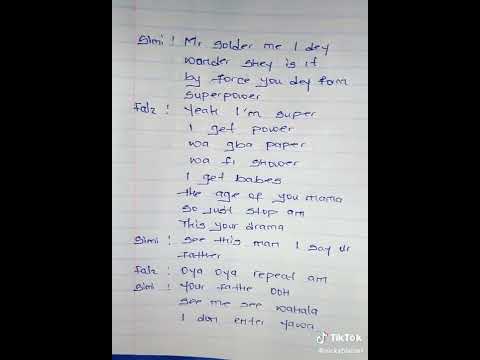 Simi: Mr solder me I dey
wonder shey is it
by force you dey form
superpower
Falz: Yeah I'm super
I get power
wa gba paper
wa fi shower
I get babes
the age of you mama
so just stop am
This your drama
Simi: see this man I say ur
father
Falz: Oya Oya repeat am
Simi: Your fathe ooh
see me see wahala
I don enter yawa
TikTok